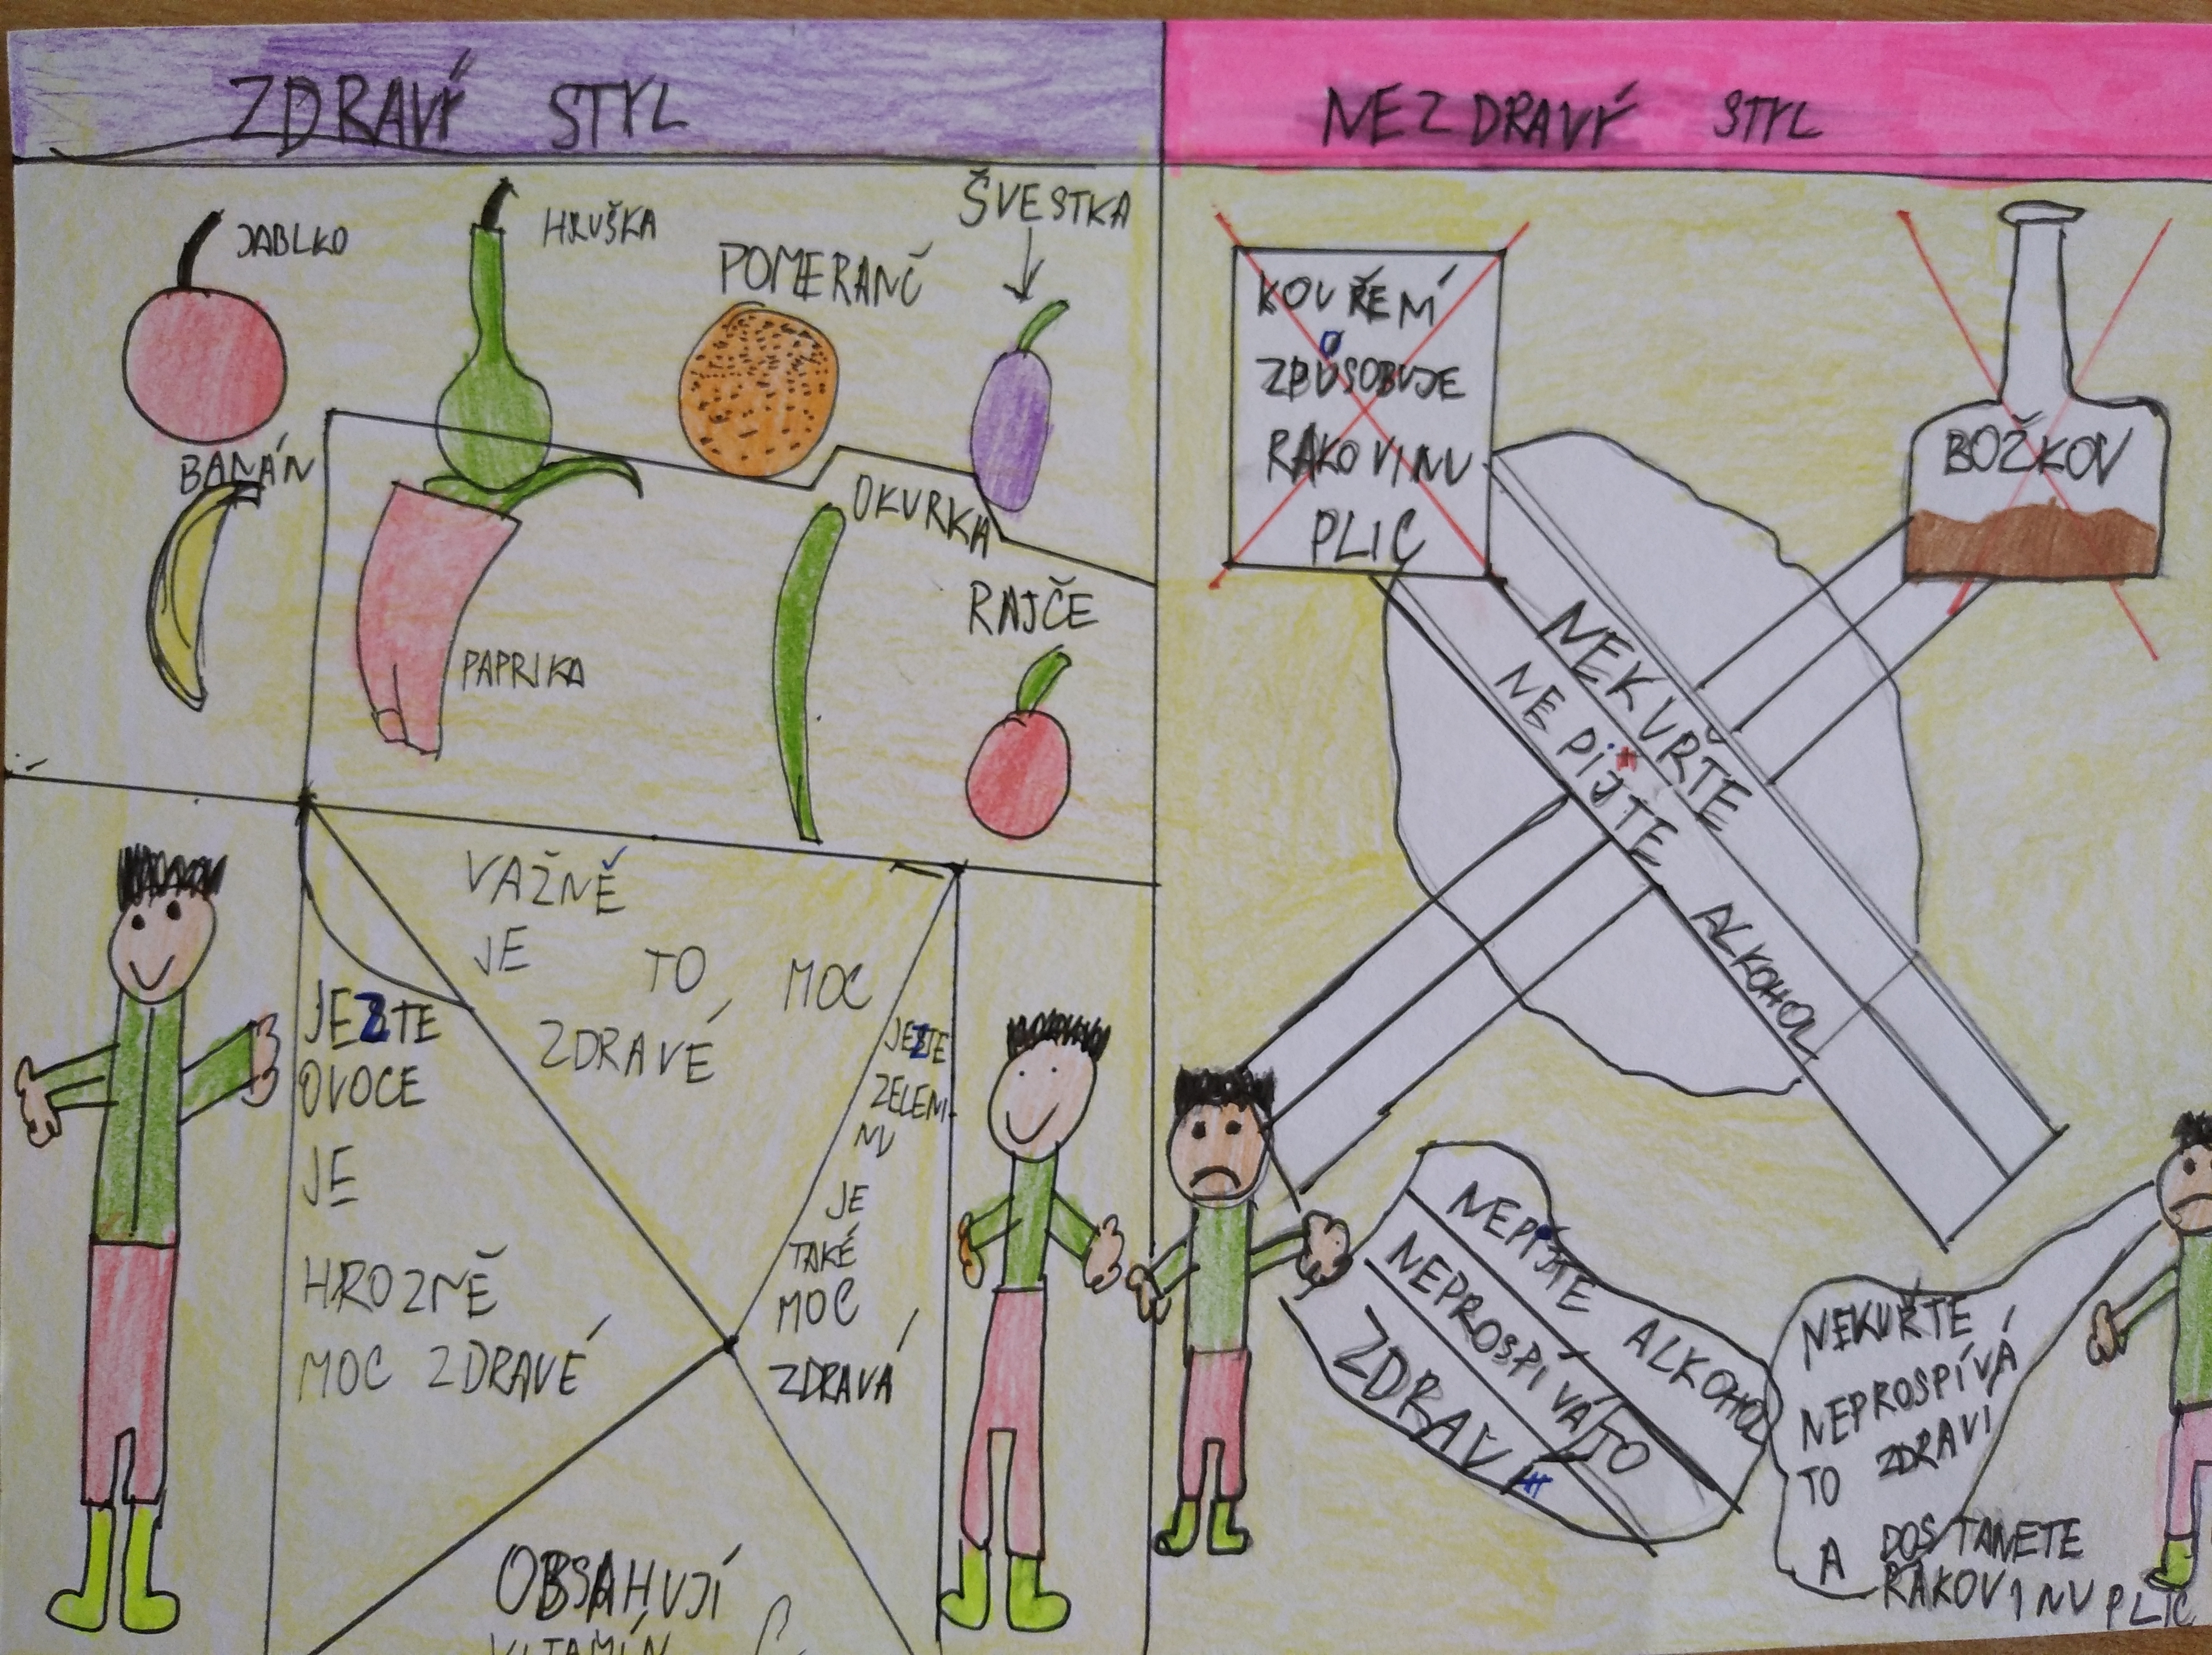 ZDRAVÝ STYL
JABLKO
HRUŠKA
POMERANČ
ŠVESTKA
BANÁN
OKURKA
PAPRIKA
RAJČE
VAŽNĚ
JE TO MOC
ZDRAVÉ
JEZTE
OVOCE
JE
HROZNĚ
MOC ZDRAVÉ
JEZTE
ZELENI
NU
JE
TAKÉ
MOC
ZDRAVÁ
OBSAHUJÍ
VITAMÍN C
NEZDRAVÝ STYL
KOUŘEMÍ
ZPŮSOBUJE
RAKOVINU
PLIC
BOŽKOV
NEKUŘTE
NEPIJTE ALKOHOL
NEPIJTE ALKOHOL
NEPROSPÍVÁ TO
ZDRAVÍ
NEKUŘTE
NEPROSPÍVÁ
TO ZDRAVI
A DOSTANETE
RAKOVINU PLIC